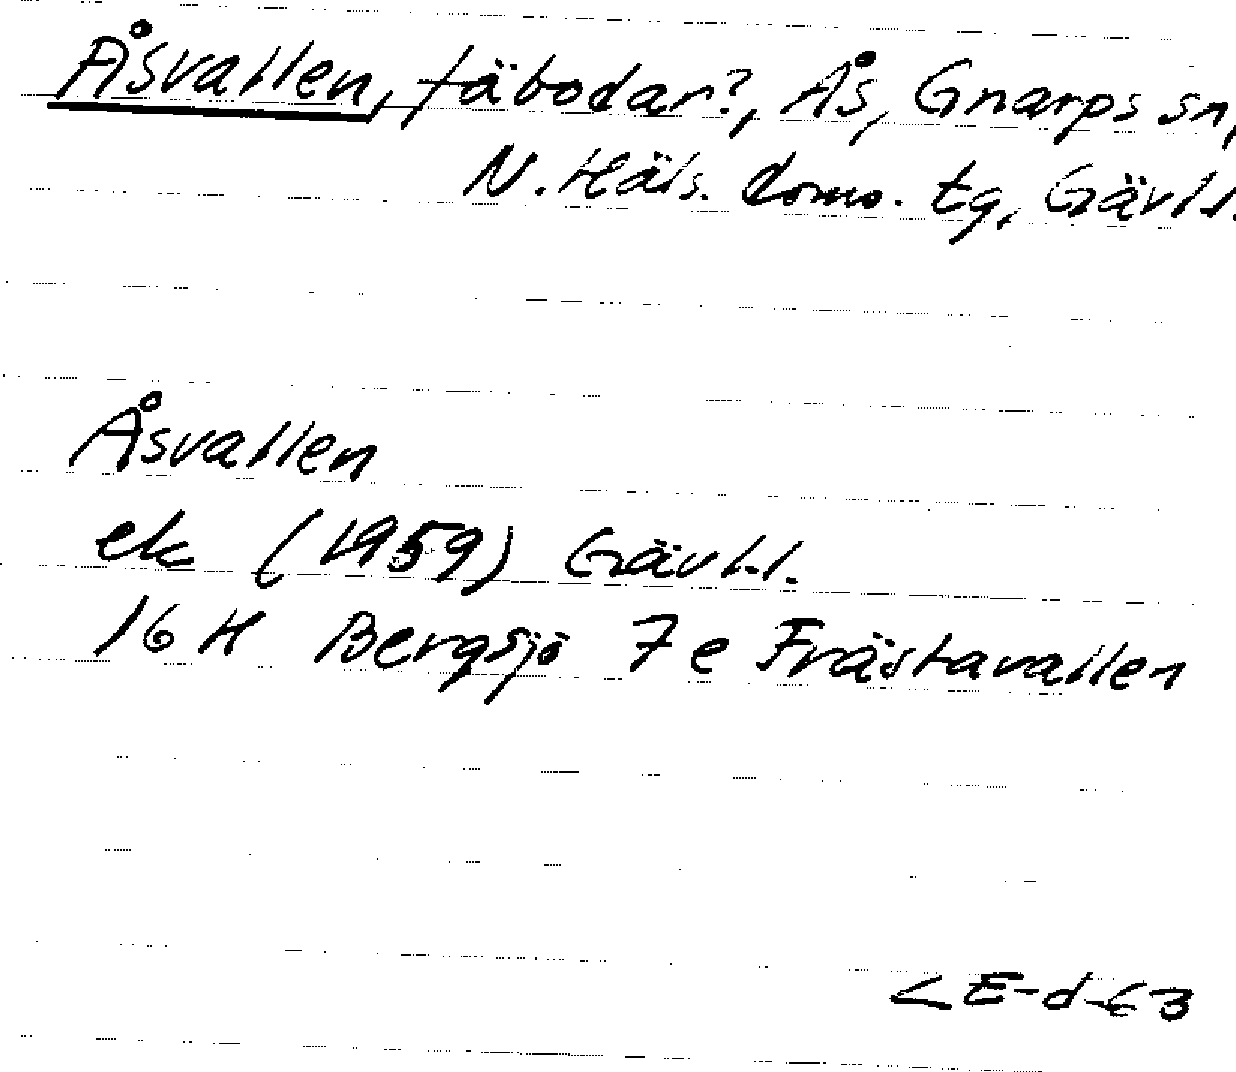 Åsvallen, fäbodar?, Ås, Gnarps sn,
N. Häls. doms. tg, Gävl.l.
Åsvallen
ek (1959) Gävl.l.
16 H Bergsjö 7 e Frästavallen